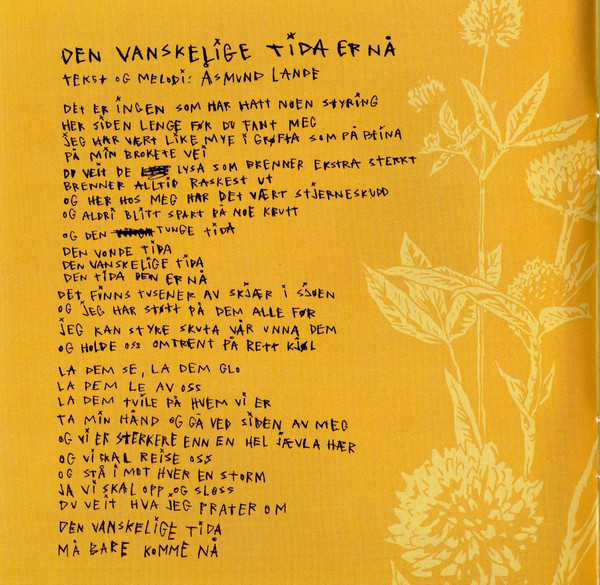 DEN VANSKELIGE TIDA ER NÅ
TEKST OG MELODI: ÅSMUND LANDE
DET ER INGEN SOM HAR HATT NOEN STYRING
HER SIDEN LENGE FØR DU FANT MEG
JEG HAR VÆRT LIKE MYE I GRØFTA SOM PÅ BEINA
PÅ MIN BROKETE VEI
DU VEIT DE LYSA SOM BRENNER EKSTRA STERKT
BRENNER ALLTID RASKEST UT
OG HER HOS MEG HAR DET VÆRT STJERNESKUDD
OG ALDRI BLITT SPART PÅ NOE KRUTT
OG DEN TUNGE TIDA
DEN VONDE TIDA
DEN VANSKELIGE TIDA
DEN TIDA DEN ER NÅ
DET FINNS TUSENER AV SKJÆR I SJØEN
OG JEG HAR STØTT PÅ DEM ALLE FØR
JEG KAN STYRE SKUTA VÅR UNNA DEM
OG HOLDE OSS OMTRENT PÅ RETT KJØL
LA DEM SE, LA DEM GLO
LA DEM LE AV OSS
LA DEM TVILE PÅ HVEM VI ER
TA MIN HÅND OG GÅ VED SIDEN AV MEG
OG VI ER STERKERE ENN EN HEL JÆVLA HÆR
OG VI SKAL REISE OSS
OG STÅ IMOT HVER EN STORM
JA VI SKAL OPP OG SLOSS
DU VEIT HVA JEG PRATER OM
DEN VANSKELIGE TIDA
MÅ BARE KOMME NÅ